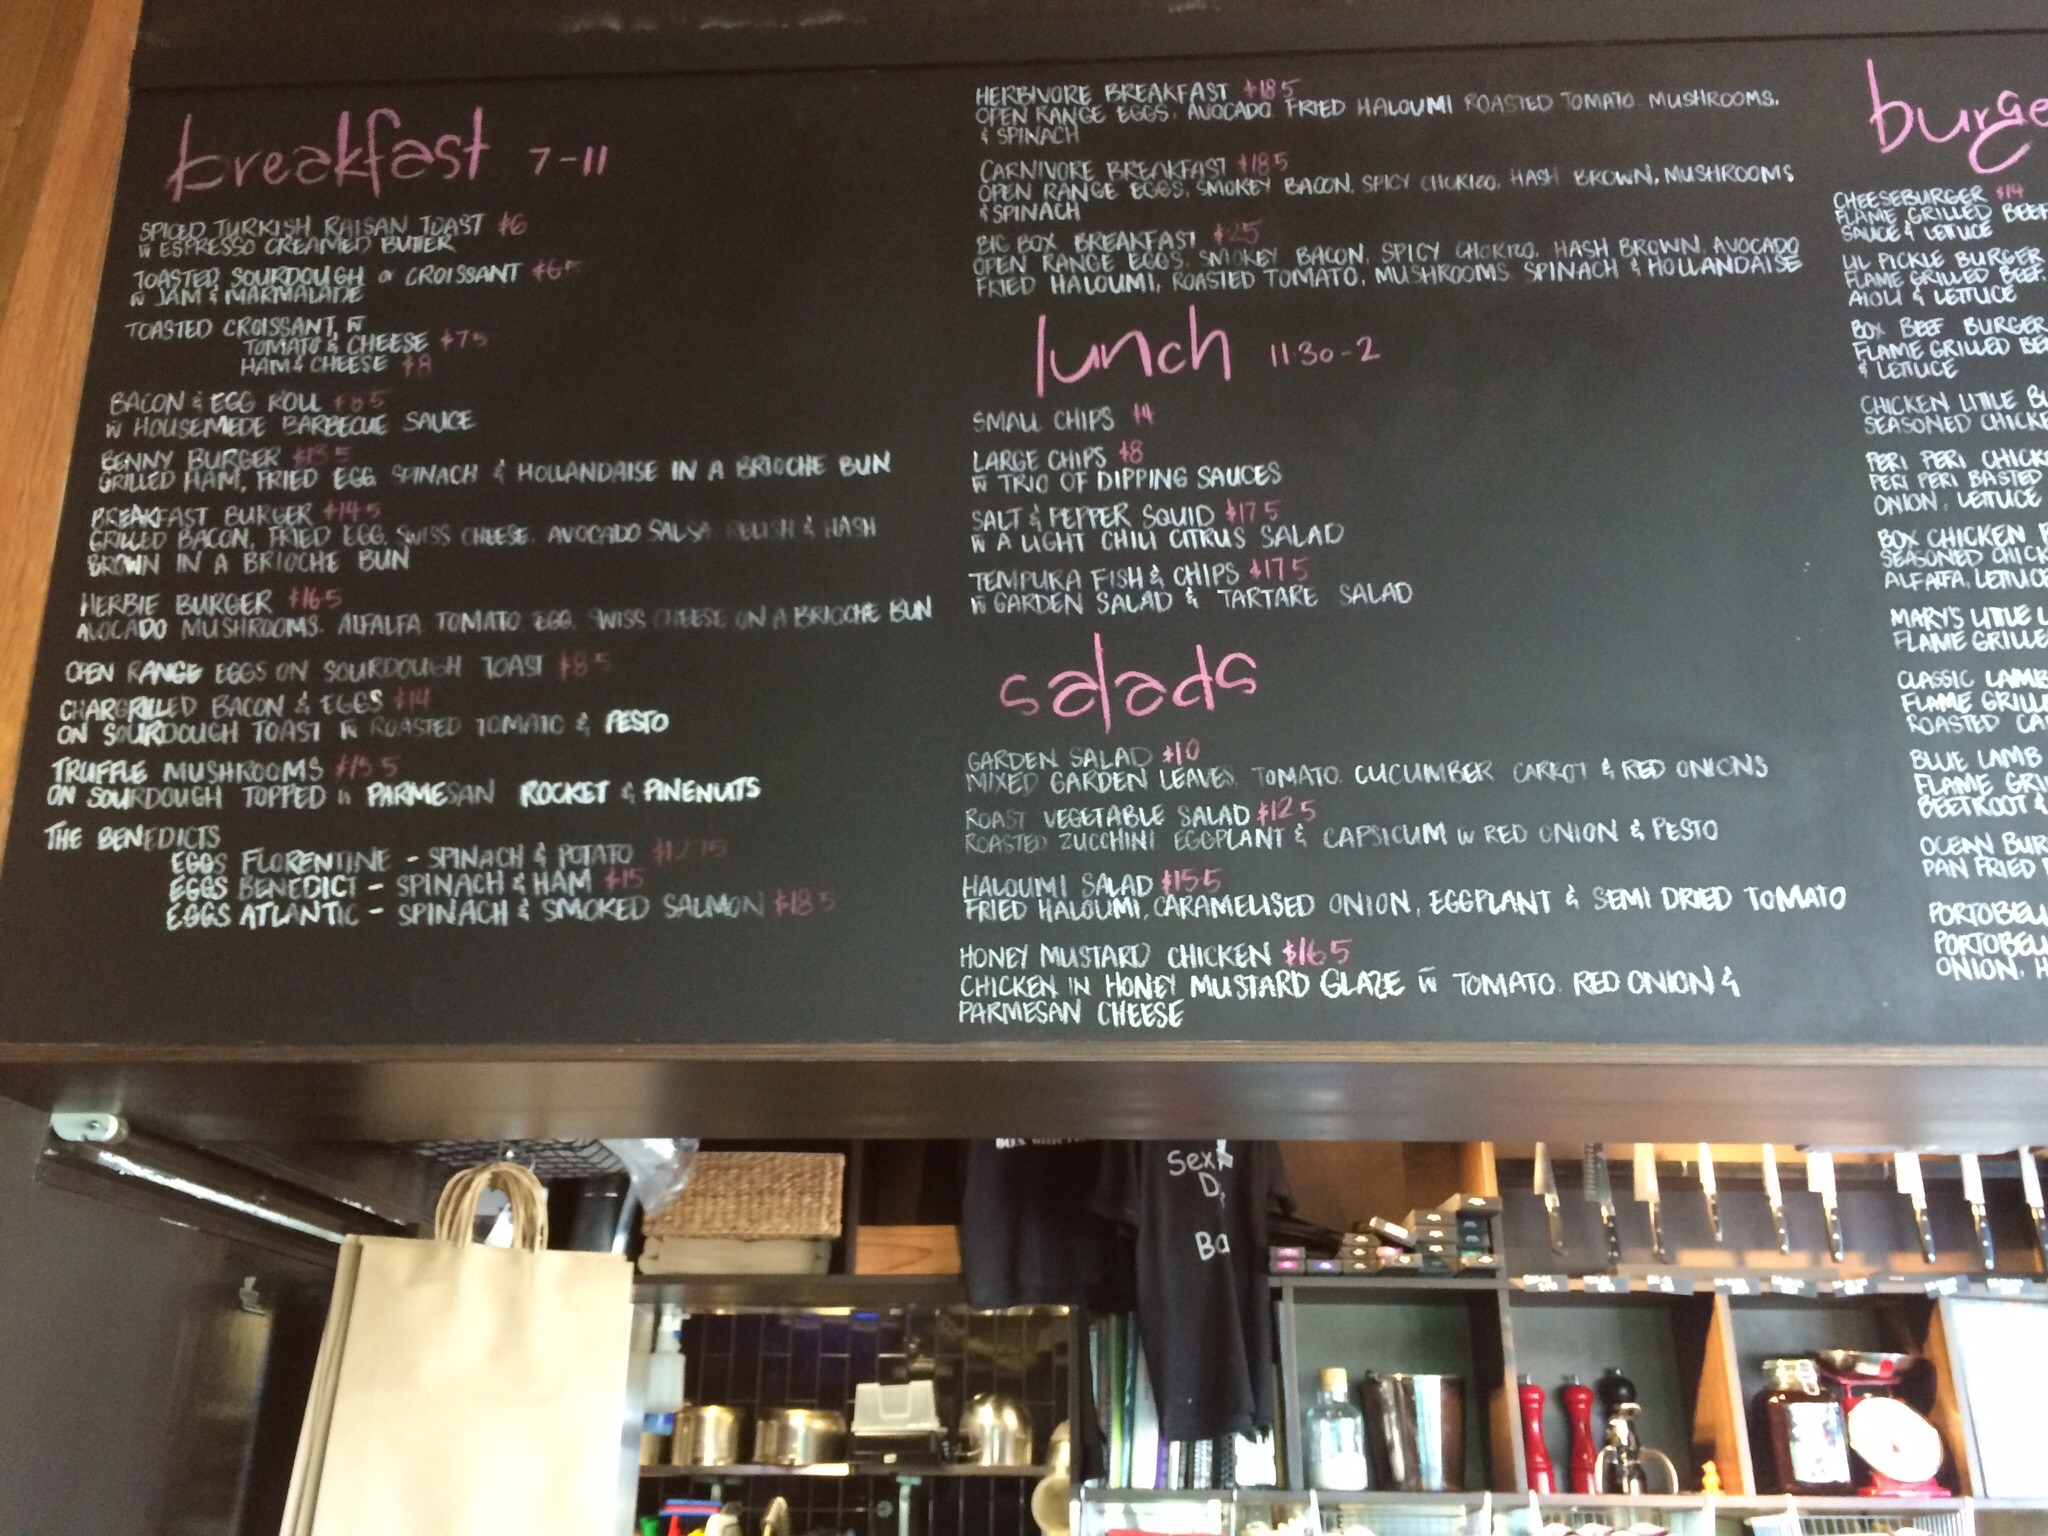 breakfast 7-11
SPICED TURKISH RAISAN TOAST $6
W ESPRESSO CREAMED BUTTER
TOASTED SOURDOUGH or CROISSANT $6.5
W JAM & MARMALADE
TOASTED CROISSANT, W
TOMATO & CHEESE $7.5
HAM & CHEESE $8
BACON & EGG ROLL $8.5
W HOUSEMEDE BARBECUE SAUCE
BENNY BURGER $13.5
GRILLED HAM, FRIED EGG, SPINACH & HOLLANDAISE IN A BRIOCHE BUN
BREAKFAST BURGER $14.5
GRILLED BACON, FRIED EGG, SWISS CHEESE, AVOCADO SALSA, RELISH & HASH
BROWN IN A BRIOCHE BUN
HERBIE BURGER $16.5
AVOCADO, MUSHROOMS, ALFALFA, TOMATO, EGG, SWISS CHEESE ON A BRIOCHE BUN
OPEN RANGE EGGS ON SOURDOUGH TOAST $8.5
CHARGRILLED BACON & EGGS $14
ON SOURDOUGH TOAST W ROASTED TOMATO & PESTO
TRUFFLE MUSHROOMS
ON SOURDOUGH TOPPED W PARMESAN ROCKET & PINENUTS
THE BENEDICTS
EGGS FLORENTINE - SPINACH & POTATO $12.75
EGGS BENEDICT - SPINACH & HAM $15
EGGS ATLANTIC - SPINACH & SMOKED SALMON $18.5
HERBIVORE BREAKFAST $18.5
OPEN RANGE EGGS, AVOCADO, FRIED HALOUMI, ROASTED TOMATO, MUSHROOMS,
& SPINACH
CARNIVORE BREAKFAST $18.5
OPEN RANGE EGGS, SMOKEY BACON, SPICY CHORIZO, HASH BROWN, MUSHROOMS
& SPINACH
BIG BOX BREAKFAST $25
OPEN RANGE EGGS, SMOKEY BACON, SPICY CHORIZO, HASH BROWN, AVOCADO
FRIED HALOUMI, ROASTED TOMATO, MUSHROOMS, SPINACH & HOLLANDAISE
lunch 11.30-2
SMALL CHIPS $4
LARGE CHIPS $8
W TRIO OF DIPPING SAUCES
SALT & PEPPER SQUID $17.5
W A LIGHT CHILI CITRUS SALAD
TEMPURA FISH & CHIPS $17.5
W GARDEN SALAD & TARTARE SALAD
salads
GARDEN SALAD $10
MIXED GARDEN LEAVES, TOMATO, CUCUMBER CARROT & RED ONIONS
ROAST VEGETABLE SALAD $12.5
ROASTED ZUCCHINI EGGPLANT & CAPSICUM W RED ONION & PESTO
HALOUMI SALAD $15.5
FRIED HALOUMI, CARAMELISED ONION, EGGPLANT & SEMI DRIED TOMATO
HONEY MUSTARD CHICKEN $16.5
CHICKEN IN HONEY MUSTARD GLAZE W TOMATO, RED ONION &
PARMESAN CHEESE
burge
CHEESEBURGER $14
FLAME GRILLED BEEF
SAUCE & LETTUCE
LIL PICKLE BURGER
FLAME GRILLED BEEF,
AIOLI & LETTUCE
BOX BEEF BURGER
FLAME GRILLED BE
& LETTUCE
CHICKEN LITTLE BU
SEASONED CHICKE
PERI PERI CHICK
PERI PERI BASTED
ONION, LETTUCE
BOX CHICKEN
SEASONED CHICK
ALFALFA, LETTUCE
MARY'S LITTLE L
FLAME GRILLE
CLASSIC LAMB
FLAME GRILL
ROASTED CA
BLUE LAMB
FLAME GRI
BEETROOT &
OCEAN BUR
PAN FRIED
PORTOBELL
PORTOBEL
ONION, H
Sex
D
Ba